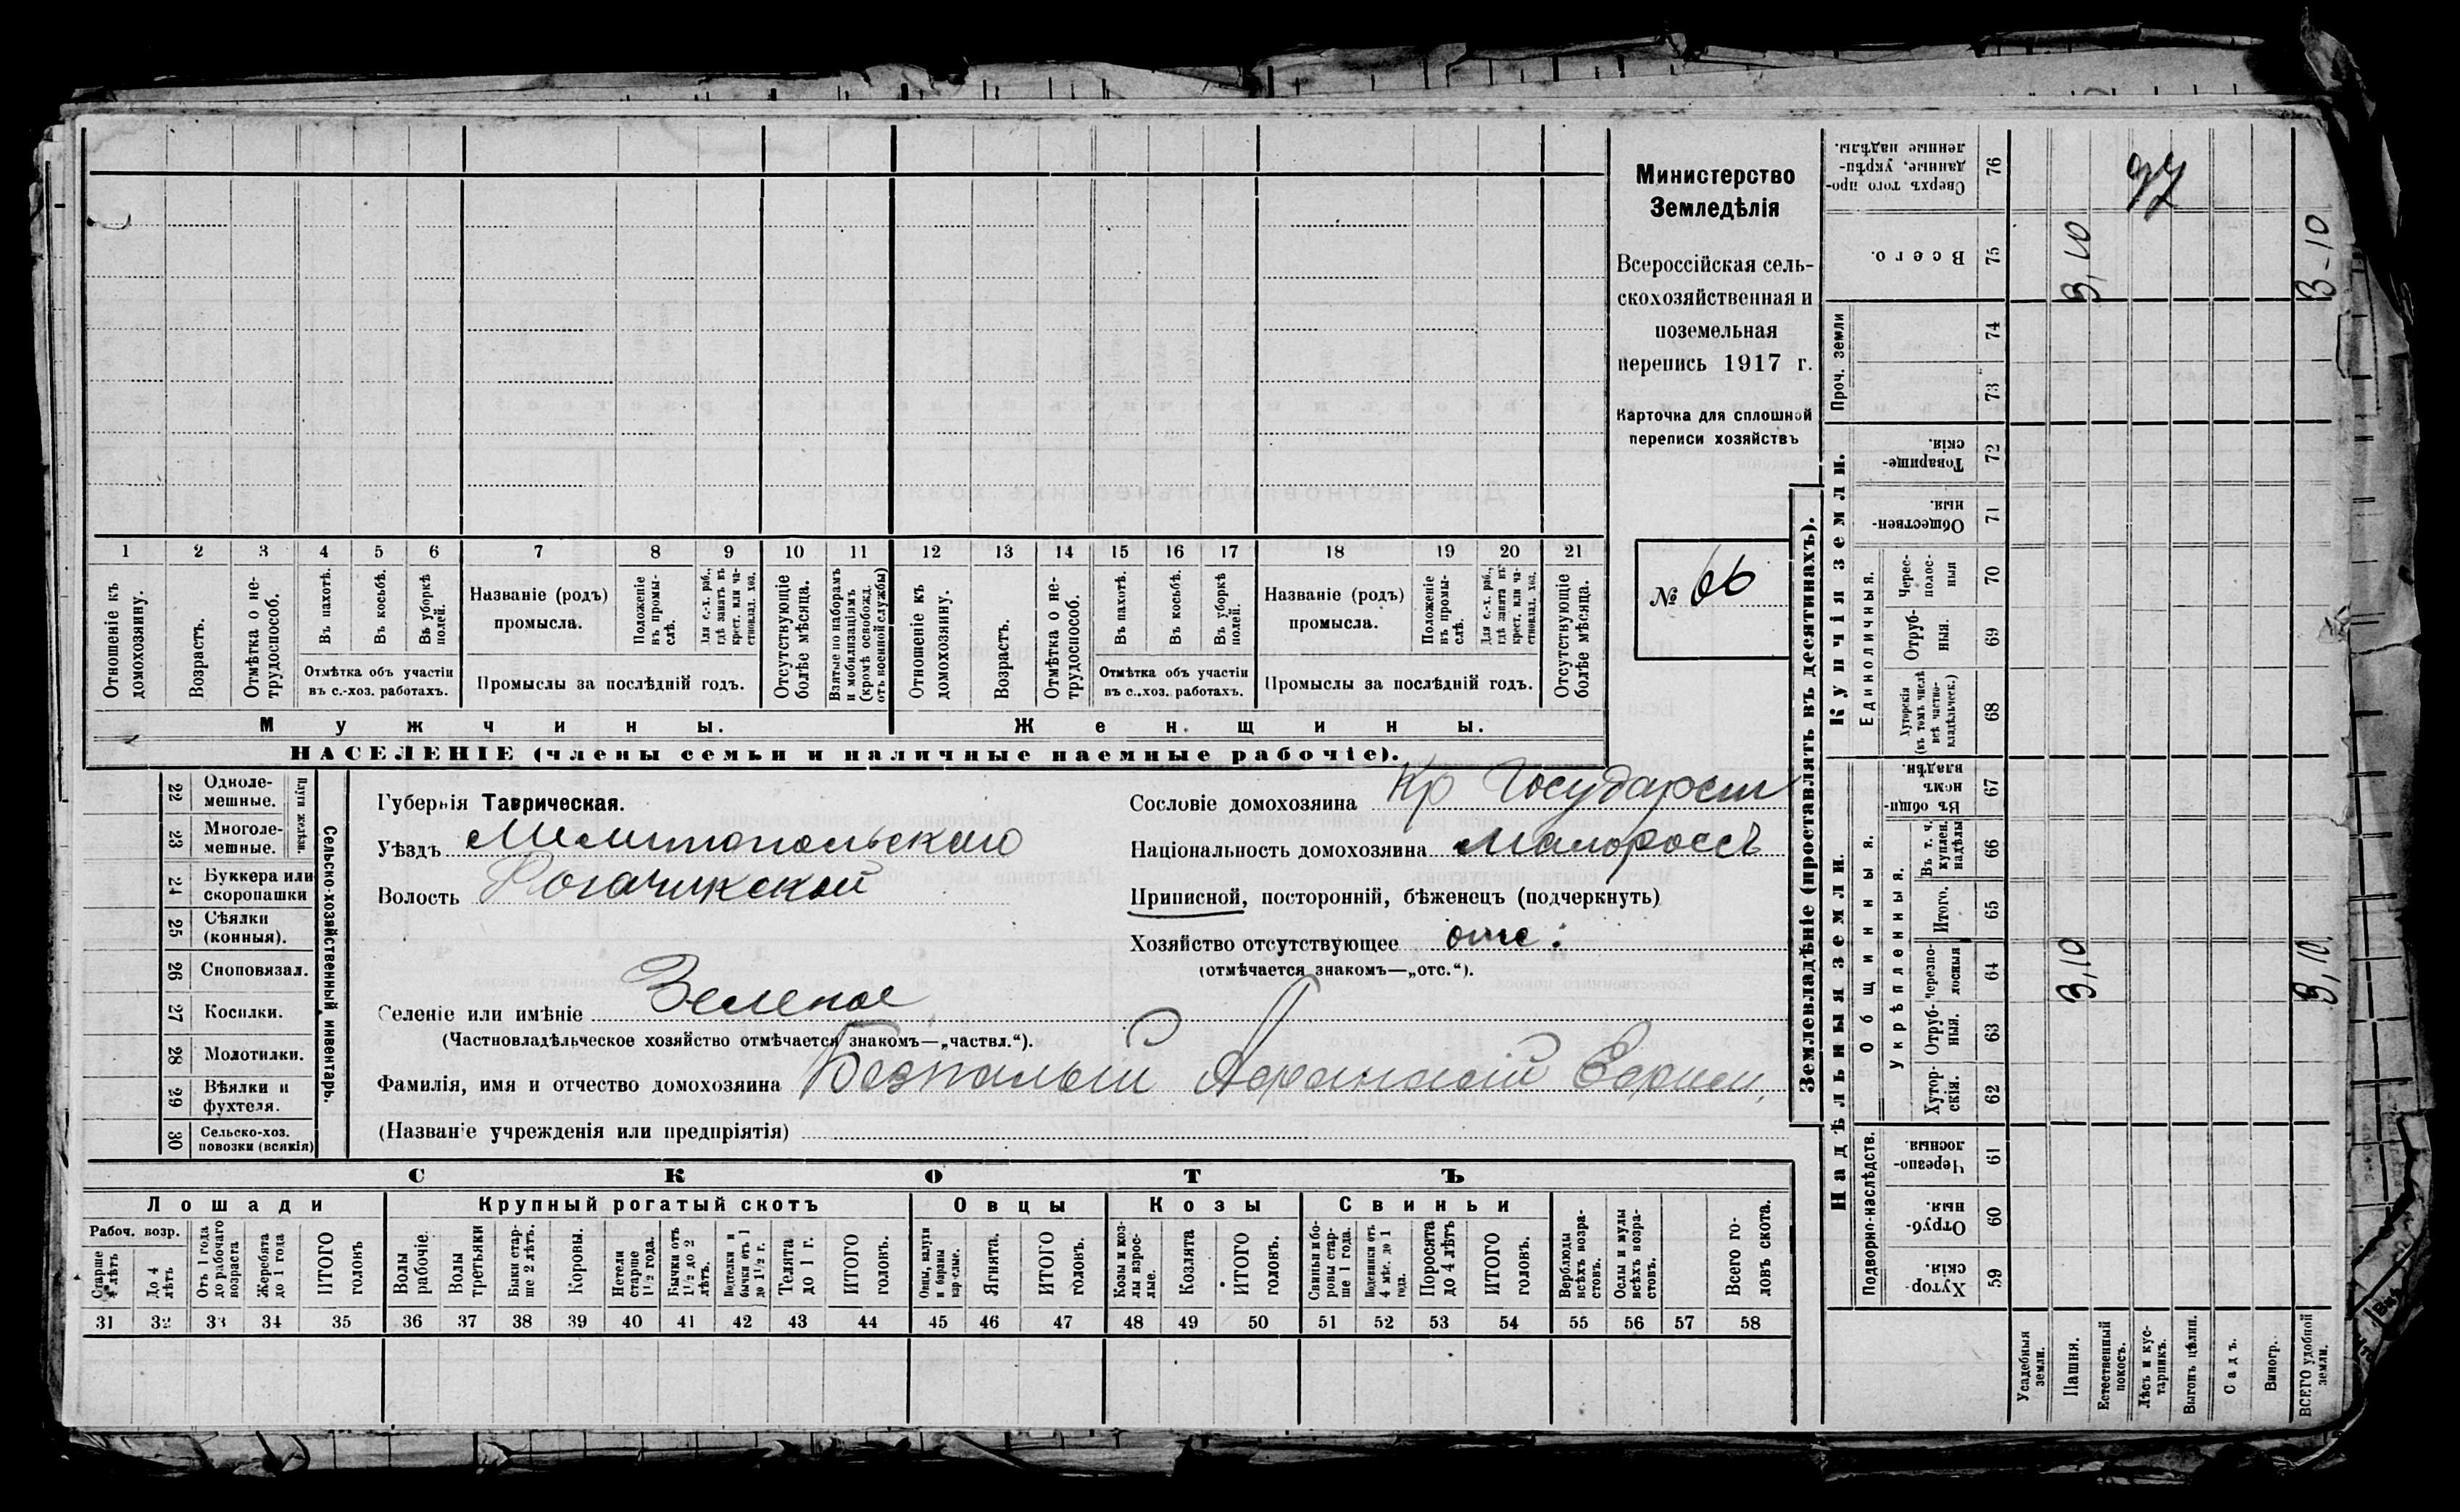 Министерство
Земледѣлія
Всероссійская сель-
скохозяйственная и
поземельная
перепись 1917 г.
Карточка для сплошной
переписи хозяйствъ
№ 66
1 2 3 4 5 6 7 8 9 10 11 12 13 14 15 16 17 18 19 20 21
Отношеніе къ домохозяину.
Возрастъ.
Отмѣтка о не-трудоспособ.
Въ пахотѣ.
Въ косьбѣ.
Въ уборкѣ полей.
Отмѣтка объ участіи
въ с.-хоз. работахъ.
Названіе (родъ)
промысла.
Положеніе въ промы-слѣ.
Для с.-х. раб., гдѣ занятъ въ крест. или ча-стновлад. хоз.
Промыслы за послѣдній годъ.
Отсутствующіе болѣе мѣсяца.
Взятые по наборамъ и мобилизаціямъ (кромѣ освобожд. отъ военной службы)
Отношеніе къ домохозяину.
Возрастъ.
Отмѣтка о не-трудоспособ.
Въ пахотѣ.
Въ косьбѣ.
Въ уборкѣ полей.
Отмѣтка объ участіи
въ с..хоз. работахъ.
Названіе (родъ)
промысла.
Положеніе въ промы-слѣ.
Для с.-х. раб., гдѣ занята въ крест. или ча-стновлад. хоз.
Промыслы за послѣдній годъ.
Отсутствующіе болѣе мѣсяца.
Мужчины. Женщины.
НАСЕЛЕНІЕ (члены семьи и наличные наемные рабочіе).
Сельско-хозяйственный инвентарь.
Плуги желѣзн.
22 Одноле-мешные.
23 Многоле-мешные.
24 Буккера или скоропашки
25 Сѣялки (конныя).
26 Сноповязал.
27 Косилки.
28 Молотилки.
29 Вѣялки и фухтеля.
30 Сельско-хоз. повозки (всякія)
Губернія Таврическая.
Уѣздъ Мелитопольскаго
Волость Рогачикской
Сословіе домохозяина Кр Государст
Національность домохозяина Малороссъ
Приписной, посторонній, бѣженецъ (подчеркнуть)
Хозяйство отсутствующее отс.
(отмѣчается знакомъ—„отс.“).
Селеніе или имѣніе Зеленое
(Частновладѣльческое хозяйство отмѣчается знакомъ—„частвл.“).
Фамилія, имя и отчество домохозяина Безпалый Афанасій Ефим.
(Названіе учрежденія или предпріятія)
СКОТЪ
Лошади Крупный рогатый скотъ Овцы Козы Свиньи
Рабоч. возр.
Старше 4 лѣтъ
До 4 лѣтъ
Отъ 1 года до рабочаго возраста
Жеребята до 1 года
ИТОГО головъ
Волы рабочіе.
Волы третьяки
Быки стар-ше 2 лѣтъ.
Коровы.
Нетели старше 1½ года.
Бычки отъ 1½ до 2 лѣтъ.
бычки отъ 1 до 1½ г.
Телята до 1 г.
ИТОГО головъ.
Овцы, валухи и бараны взрослые.
Ягнята.
ИТОГО головъ.
Козы и коз-лы взрос-лые.
Козлята
ИТОГО головъ.
Свиньи и бо-ровы стар-ше 1 года.
Подсвинки отъ 4 мѣс. до 1 года.
Поросята до 4 лѣтъ
ИТОГО головъ.
Верблюды всѣхъ возра-стовъ.
Ослы и мулы всѣхъ возра-стовъ.
Всего го-ловъ скота.
31 32 33 34 35 36 37 38 39 40 41 42 43 44 45 46 47 48 49 50 51 52 53 54 55 56 57 58
Землевладѣніе (проставлять въ десятинахъ).
Надѣльныя земли. Купчія земли. Проч. земли
Подворно-наслѣдств.
59 Хутор-скія.
60 Отруб-ныя.
61 Черезпо-лосныя
Общинныя.
Укрѣпленныя.
62 Хутор-скія.
63 Отруб-ныя.
64 Черезпо-лосныя
65 Итого.
66 Въ т. ч. куплен. надѣлы
67 Въ общи-номъ владѣн.
Единоличныя.
68 Хуторскія (въ томъ числѣ всѣ частно-владѣльческ.)
69 Отруб-ныя.
70 Черес-полос-ныя
71 Обществен-ныя.
72 Товарище-скія.
73
74
75 Всего.
76 Сверхъ того про-данные, укрѣп-ленные надѣлы.
Усадебныя земли.
Пашня. 3,10 3,10
Естественный покосъ.
Лѣсъ и кус-тарникъ.
Выгонъ цѣлин.
Садъ.
Виногр.
ВСЕГО удобной земли. 3,10 3-10